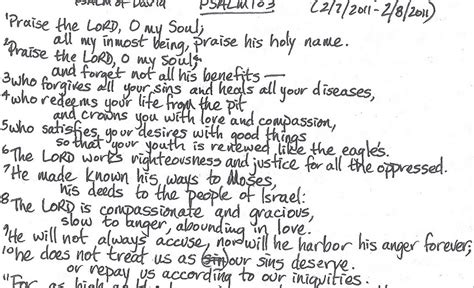 PSALM of David PSALM 103 (2/7/2011-2/8/2011)
1Praise the LORD, O my Soul;
all my inmost being, praise his holy name.
2Praise the LORD, O my Soul;
and forget not all his benefits —
3who forgives all your sins and heals all your diseases,
4who redeems your life from the pit
and crowns you with love and compassion,
5who satisfies your desires with good things
so that your youth is renewed like the eagle's.
6The LORD works righteousness and justice for all the oppressed.
7He made known his ways to Moses,
his deeds to the people of Israel:
8The LORD is compassionate and gracious,
slow to anger, abounding in love.
9He will not always accuse, nor will he harbor his anger forever;
10he does not treat us as our sins deserve.
or repay us according to our iniquities.
11For as high as the